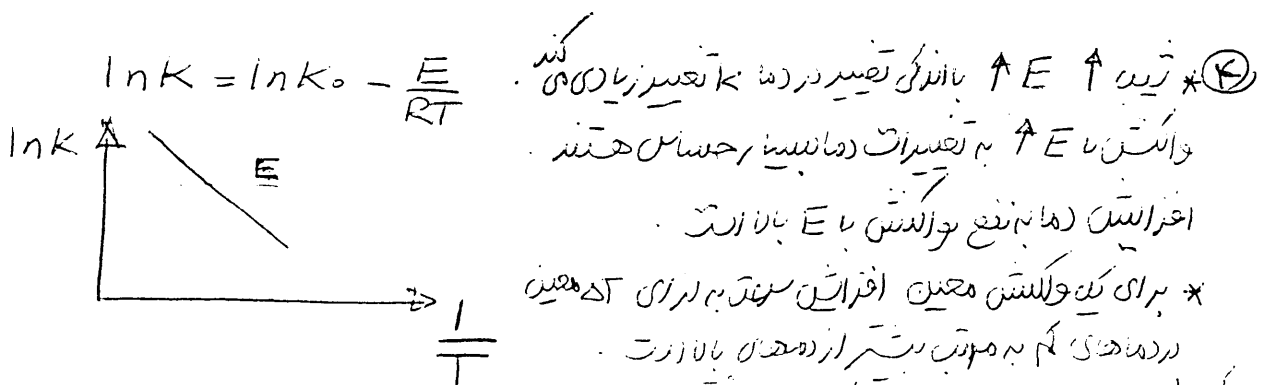 ln K = ln K₀ - E/RT
ln K
E
1/T
④ * شیب ↑ E ↑ با اندکی تغییر در دما k تغییر زیادی می کند .
واکنش با E ↑ به تغییرات دما بسیار حساس هستند .
افزایش دما به نفع واکنش با E بالا است .
* برای یک واکنش معین افزایش سرعت به ازای ΔT معین
در دماهای کم به مراتب بیشتر از دماهای بالا است .